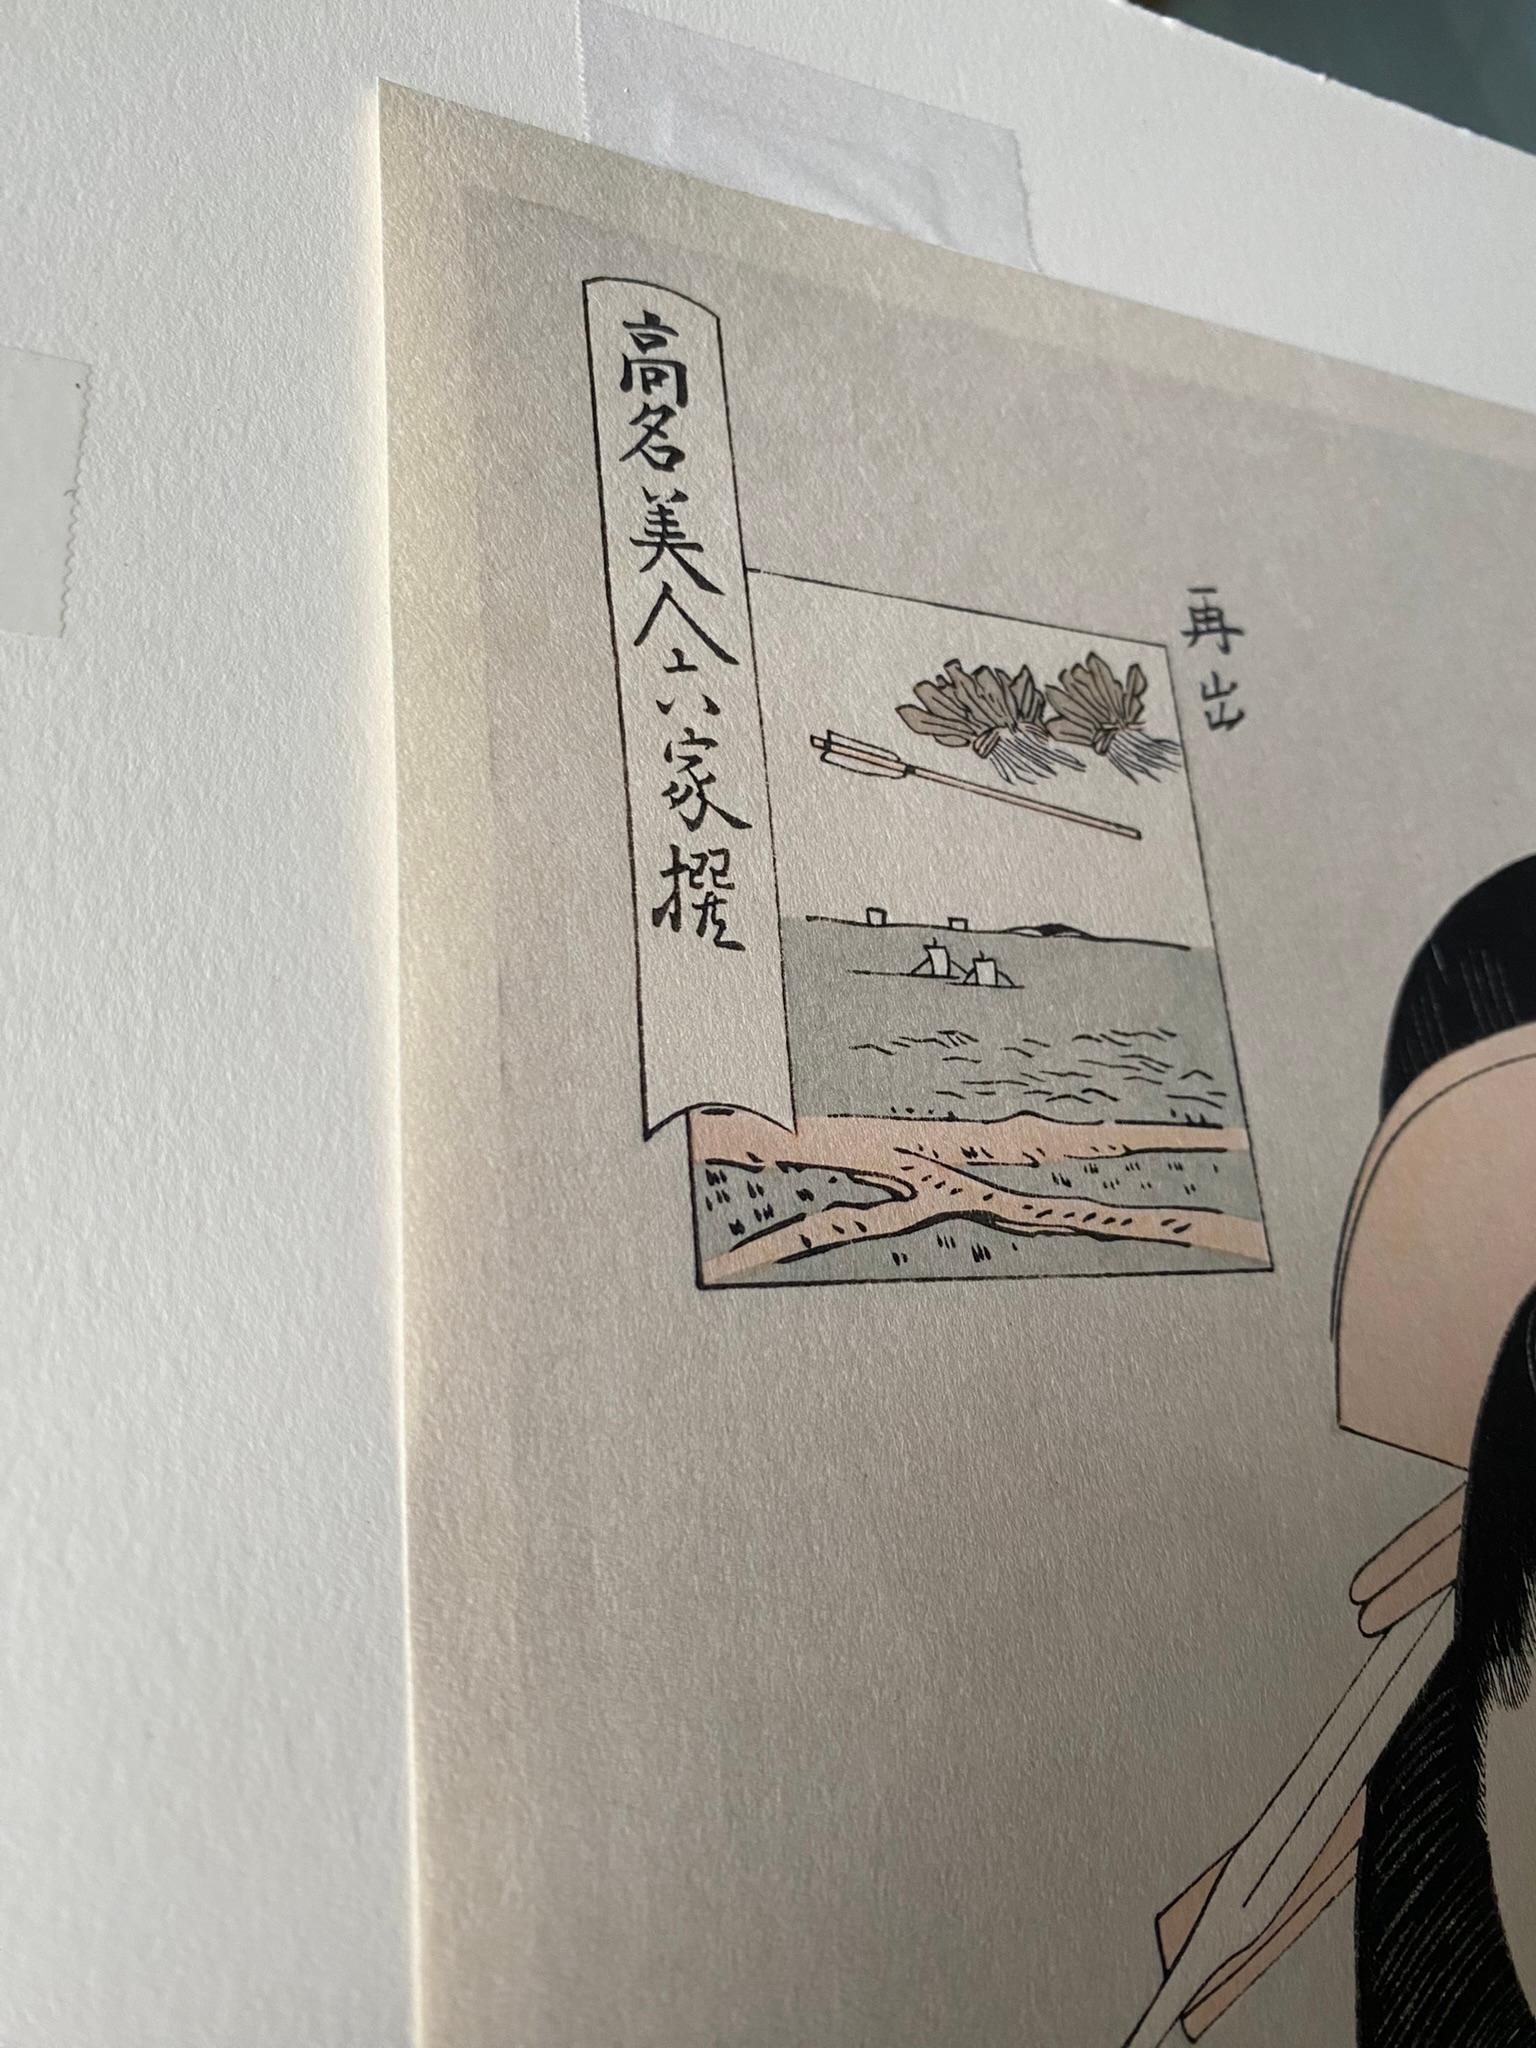 再出
高名美人六家撰